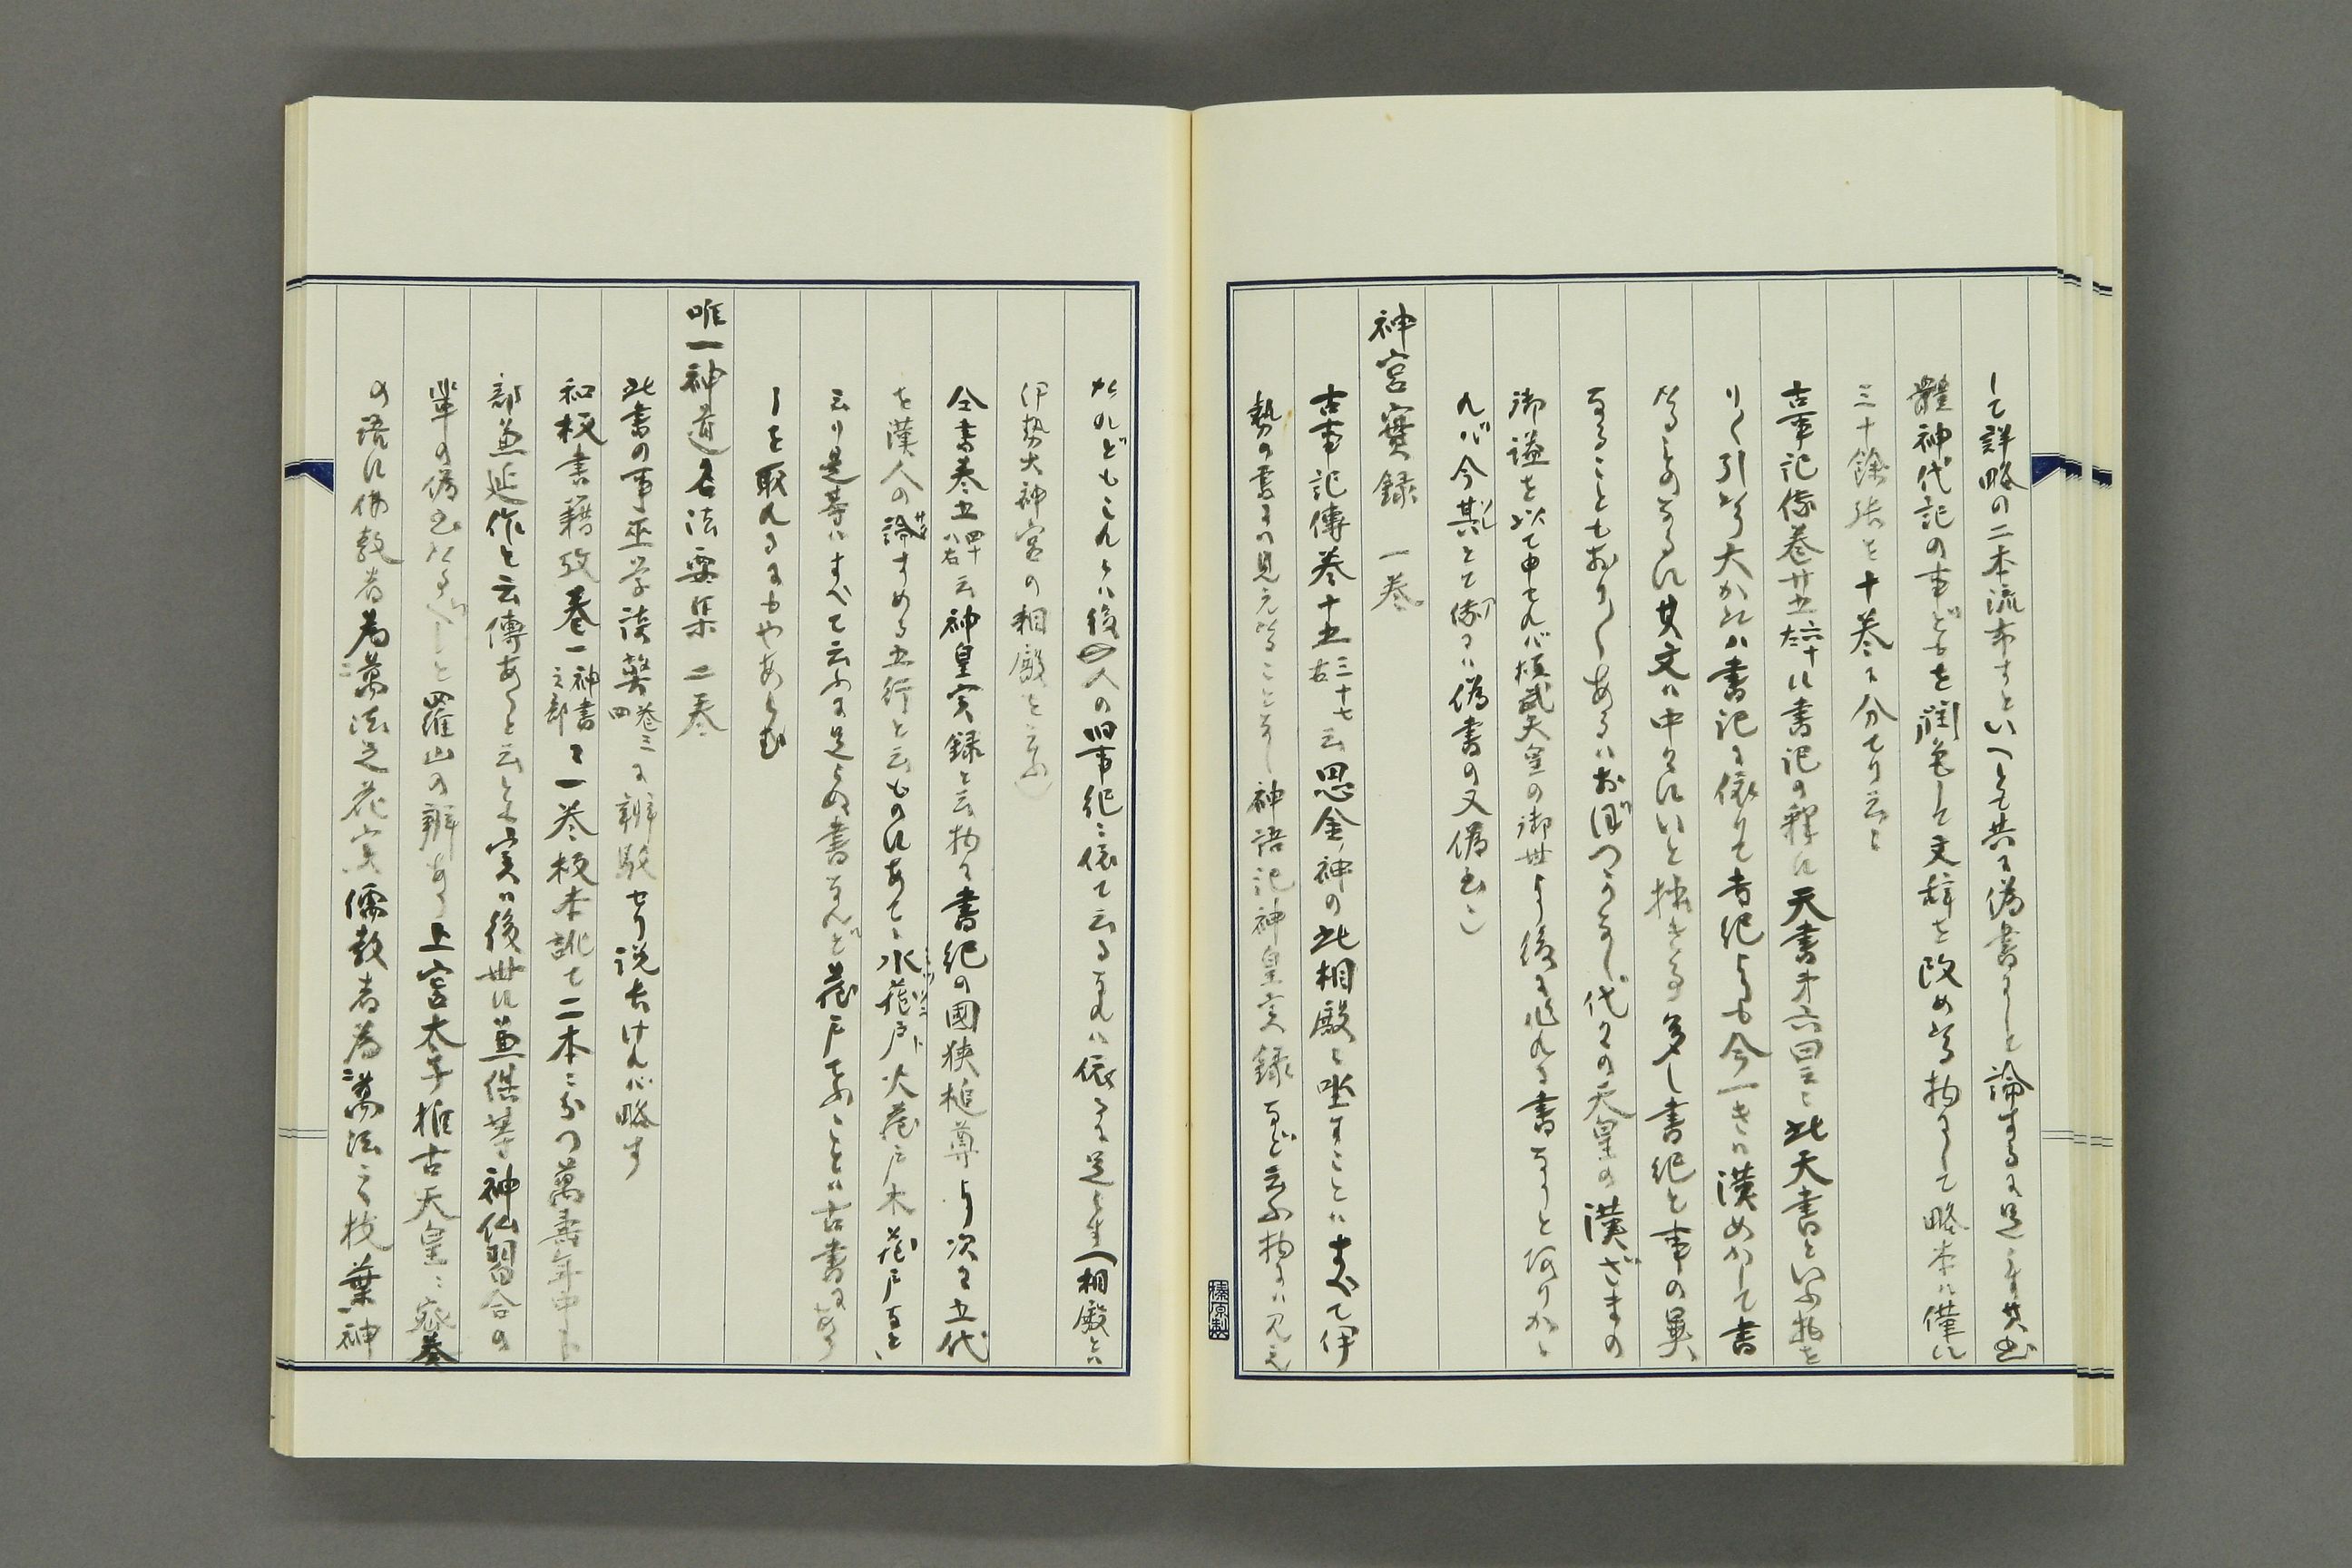 して詳略の二本流布すといへとも共に偽書なりと論するに足らす其書
體神代記の事どもを潤色して文辞を改めたる物にして略本は僅に
三十餘張を十巻に分てり云と
古事記傳巻廿五六十左に書記の釋に天書第六曰云々此天書といふ物を
りく引たり大かたは書記に依りて書紀よりも今一きは漢めかして書
たるものなるに其文は中々にいと拙きる多し書紀と事の異
なることもおりしあるはおぼつかなし代々の天皇の漢ざまの
御謚を以て申せれば桓武天皇の御世より後に作れる書なりと阿りかし
れバ今其とて傳るハ偽書の又偽書也
神宮寳録 一巻
古事記傳巻十五三十七右云思金神の此相殿に坐すことはすべて伊
勢の書には見えたることなし神語記神皇実録など云ふ物には見え
たれどもこれらハ後の人の旧事紀に依て云るなれハ依るに足らす(相殿とハ
伊勢大神宮の相殿を云ふ)
仝書巻五四十八右云神皇実録と云物に書紀の國狭槌尊より次々五代
を漢人の論すめる五行と云ものにあて、水蔵戸火蔵戸木蔵戸なと、
云り是等はすべて云ふに足らぬ書なれど蔵戸てふことハ古書に有り
しを取れるにもやあらむ
唯一神道名法要集 二巻
此書の事巫学談弊巻三四に辨駁せり説長けれバ略す
和板書籍攷巻一神書之部に一巻板本訛て二本に分つ萬壽年中卜
部兼延作と云傳あらと云とも実は後世に兼倶等神仏習合の
輩の偽書なるべしと羅山の辨あり上宮太子推古天皇に密奏
の語に佛教者為萬法之花実儒教者為萬法之枝葉神
榛原製